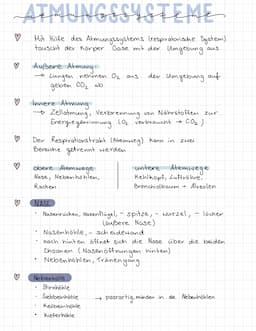 ATMUNGSSYSTEME
Mit Hilfe des Atmungssystems (respiratorische System)
tauscht der Körper Gase mit der Umgebung aus
Äußere Atmung:
→ Lungen nehmen O₂ aus der Umgebung auf
geben CO₂ ab
Innere Atmung
→ Zellatmung, Verbrennung von Nährstoffen zur
Energiegewinnung (O₂ verbraucht → CO₂)
Der Respirationstrakt (Atemweg) kann in zwei
Bereiche getrennt werden
obere Atemwege
Nase, Nebenhöhlen,
Rachen
untere Atemwege
Kehlkopf, Luftröhre,
Bronchialbaum + Alveolen
NASE
Nasenrücken, Nasenflügel, -spitze, -wurzel, -löcher
(äußere Nase)
Nasenhöhle, -scheidewand
nach hinten öffnet sich die Nase über die beiden
Choanen (Nasenöffnungen hinten)
Nebenhöhlen, Tränengang
Nebenhöhle
Stirnhöhle
Siebbeinhöhle → paarartig münden in die Nebenhöhlen
Keilbeinhöhle
Kieferhöhle